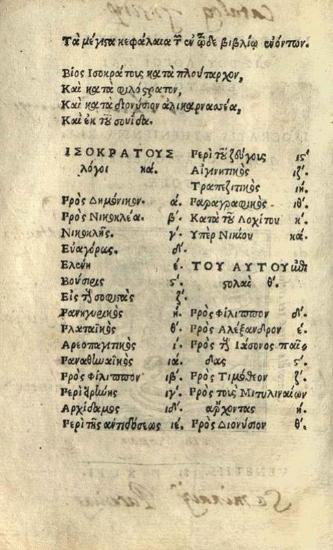 Τὰ μέγιστα κεφάλαια τῶν ἐν τῷδε βιβλίῳ ἐνόντων.
Βίος Ἰσοκράτους κατὰ πλούταρχον,
Καὶ κατὰ φιλόστρατον,
Καὶ κατὰ διονύσιον ἁλικαρνασέα,
Καὶ ἐκ τοῦ σουίδα.
ΙΣΟΚΡΑΤΟΥΣ
λόγοι κά.
Πρὸς Δημόνικον. ά.
Πρὸς Νικοκλέα. β΄.
Νικοκλῆς. γ΄.
Εὐαγόρας. δ΄.
Ἑλένη έ.
Βούσιρις ς΄.
Εἰς τοὺς σοφιστὰς ζ΄.
Πανηγυρικὸς ή.
Πλαταϊκὸς θ΄.
Ἀρεοπαγιτικὸς ί.
Παναθηναϊκὸς ιά.
Πρὸς Φίλιππον ιβ΄.
Περὶ εἰρήνης ιγ΄.
Ἀρχίδαμος ιδ΄.
Περὶ τῆς ἀντιδόσεως ιέ.
Περὶ τοῦ ζεύγους ις΄
Αἰγινητικὸς ιζ΄.
Τραπεζιτικὸς ιή.
Παραγραφικὸς ιθ΄.
Κατὰ τοῦ Λοχίτου κ΄.
Ὑπὲρ Νικίου κά.
ΤΟΥ ΑΥΤΟΥ ἐπι
στολαὶ θ΄.
Πρὸς Φίλιππον δύ.
Πρὸς Ἀλέξανδρον έ.
Πρὸς τοὺς Ἰάσονος παῖ
δας ς΄.
Πρὸς Τιμόθεον ζ΄.
Πρὸς τοὺς Μιτυληναίων
ἄρχοντας ή.
Πρὸς Διονύσιον θ΄.